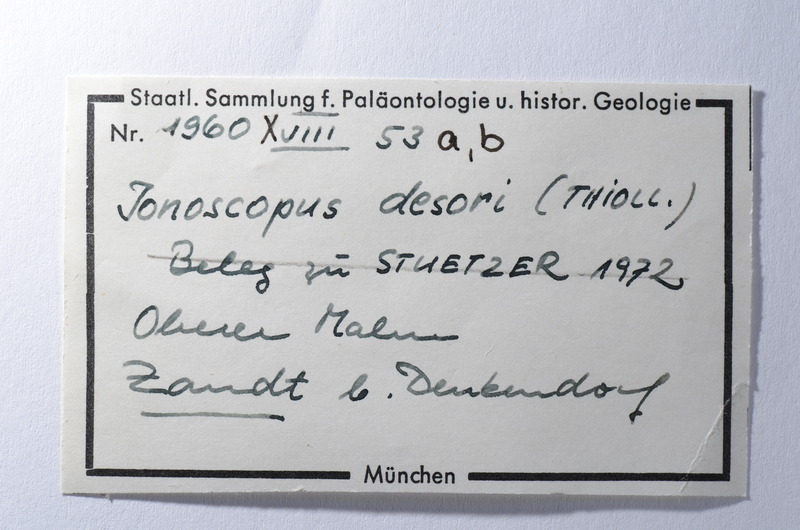 Staatl. Sammlung f. Paläontologie u. histor. Geologie
Nr. 1960 XVIII 53 a,b
Jonoscopus desori (THIOLL.)
Beleg zu STUETZER 1972
Oberer Malm
Zandt b. Denkendorf
München